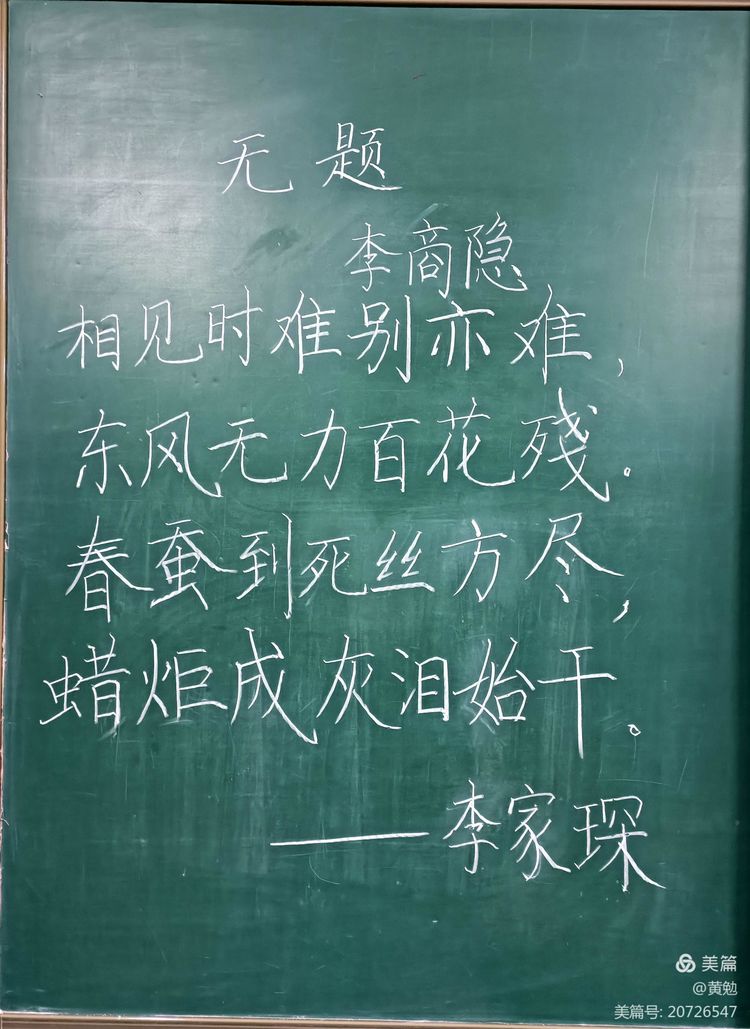 无题
李商隐
相见时难别亦难，
东风无力百花残。
春蚕到死丝方尽，
蜡炬成灰泪始干。
——李家琛
美篇
@黄勉
美篇号: 20726547